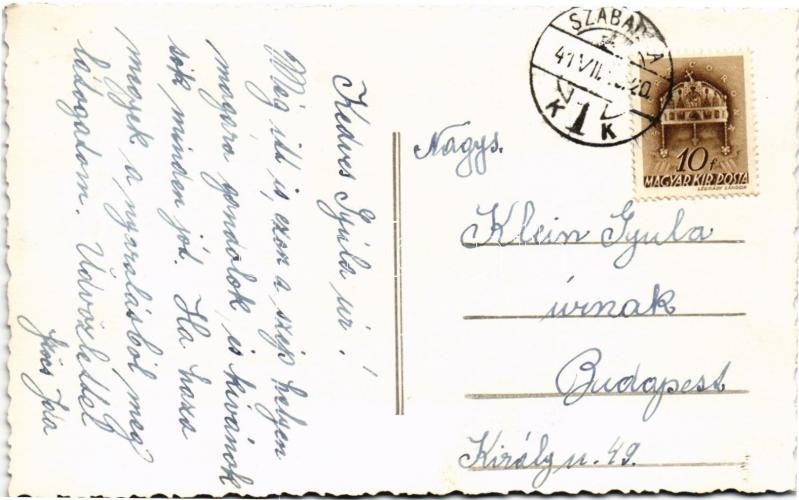 Kedves Gyula úr!
Még itt is, ezen a szép helyen
magára gondolok, is kivánok
sok minden jót. Ha haza
megyek a nyaralásból meg
látogatom. Üdvözlettel
SZABADKA
41 VII 20
K K
10 f
MAGYAR KIR. POSTA
LÉGRÁDY SÁNDOR
Nagys.
Klein Gyula
úrnak
Budapest
Király u. 49.